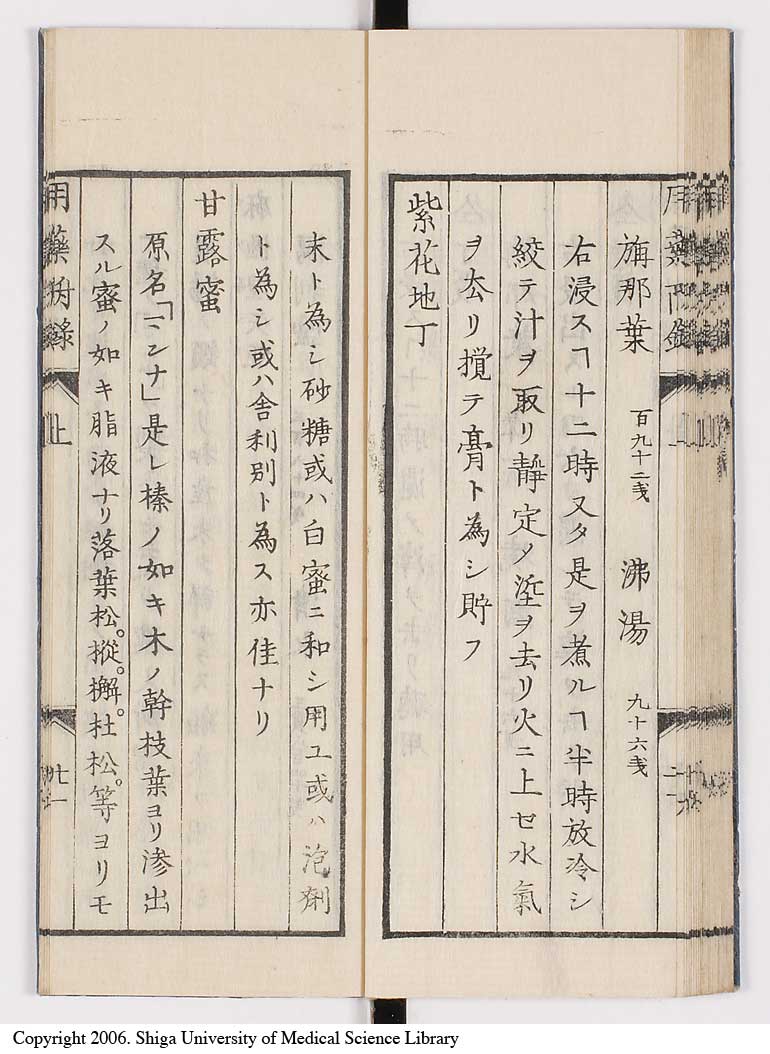 旃那葉 百九十二戔 沸湯 九十六戔
右浸スヿ十二時又タ是ヲ煮ルヿ半時放冷シ
絞テ汁ヲ取リ靜定メ垽ヲ去リ火ニ上セ水氣
ヲ厺リ攪テ膏ト為シ貯フ
紫花地丁
末ト為シ砂糖或ハ白蜜ニ和シ用ユ或ハ泡劑
ト為シ或ハ舎利別ト為ス亦佳ナリ
甘露蜜
原名「ミンナ」是レ榛ノ如キ木ノ幹枝葉ヨリ滲出
スル蜜ノ如キ脂液ナリ落葉松。樅。檞。杜松。等ヨリモ
用藥 上 廿一
Copyright 2006. Shiga University of Medical Science Library